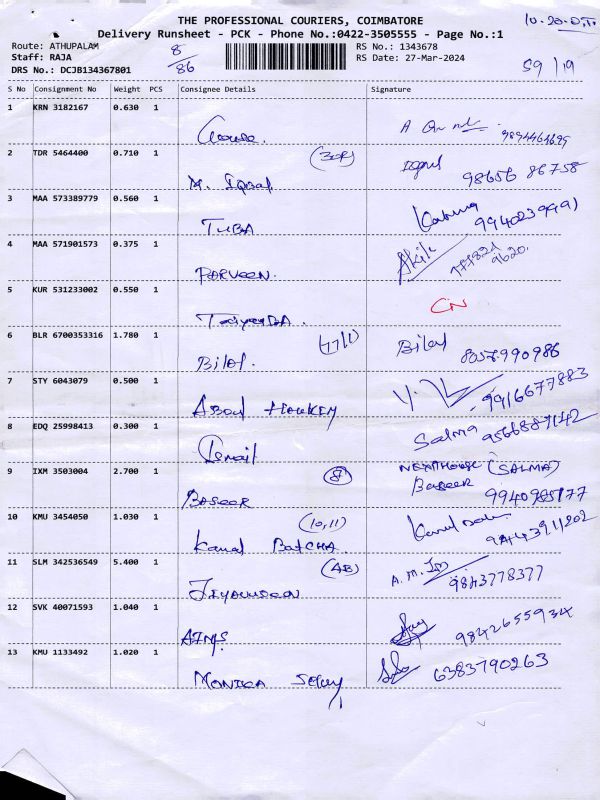 THE PROFESSIONAL COURIERS, COIMBATORE
Delivery Runsheet - PCK - Phone No.:0422-3505555 - Page No.:1
Route: ATHUPALAM
Staff: RAJA
DRS No.: DCJB134367801
8/86
RS No.: 1343678
RS Date: 27-Mar-2024
59/19
S No Consignment No Weight PCS Consignee Details Signature
1 KRN 3182167 0.630 1
2 TDR 5464400 0.710 1 M. Iqbal 98656 86758
3 MAA 573389779 0.560 1 TUBA
4 MAA 571901573 0.375 1 PARVEEN
5 KUR 531233002 0.550 1 CN
6 BLR 6700353316 1.780 1 Bilal. (17/1) Bilal
7 STY 6043079 0.500 1 9916677883
8 EDQ 25998413 0.300 1 Ismail Salma 9566887142
9 IXM 3503004 2.700 1 BASEER (8) NEXTHOUSE (SALMA)
Baseer
10 KMU 3454050 1.030 1 Kamal BATCHA. (10,11)
11 SLM 342536549 5.400 1 (AB) 9843778377
12 SVK 40071593 1.040 1 9842655934
13 KMU 1133492 1.020 1 MONICA 6383790263